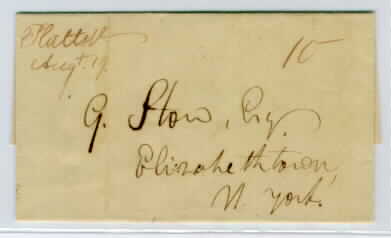 Augt. 19
10
G. Stow, Esq.
Elizabethtown,
N. York.